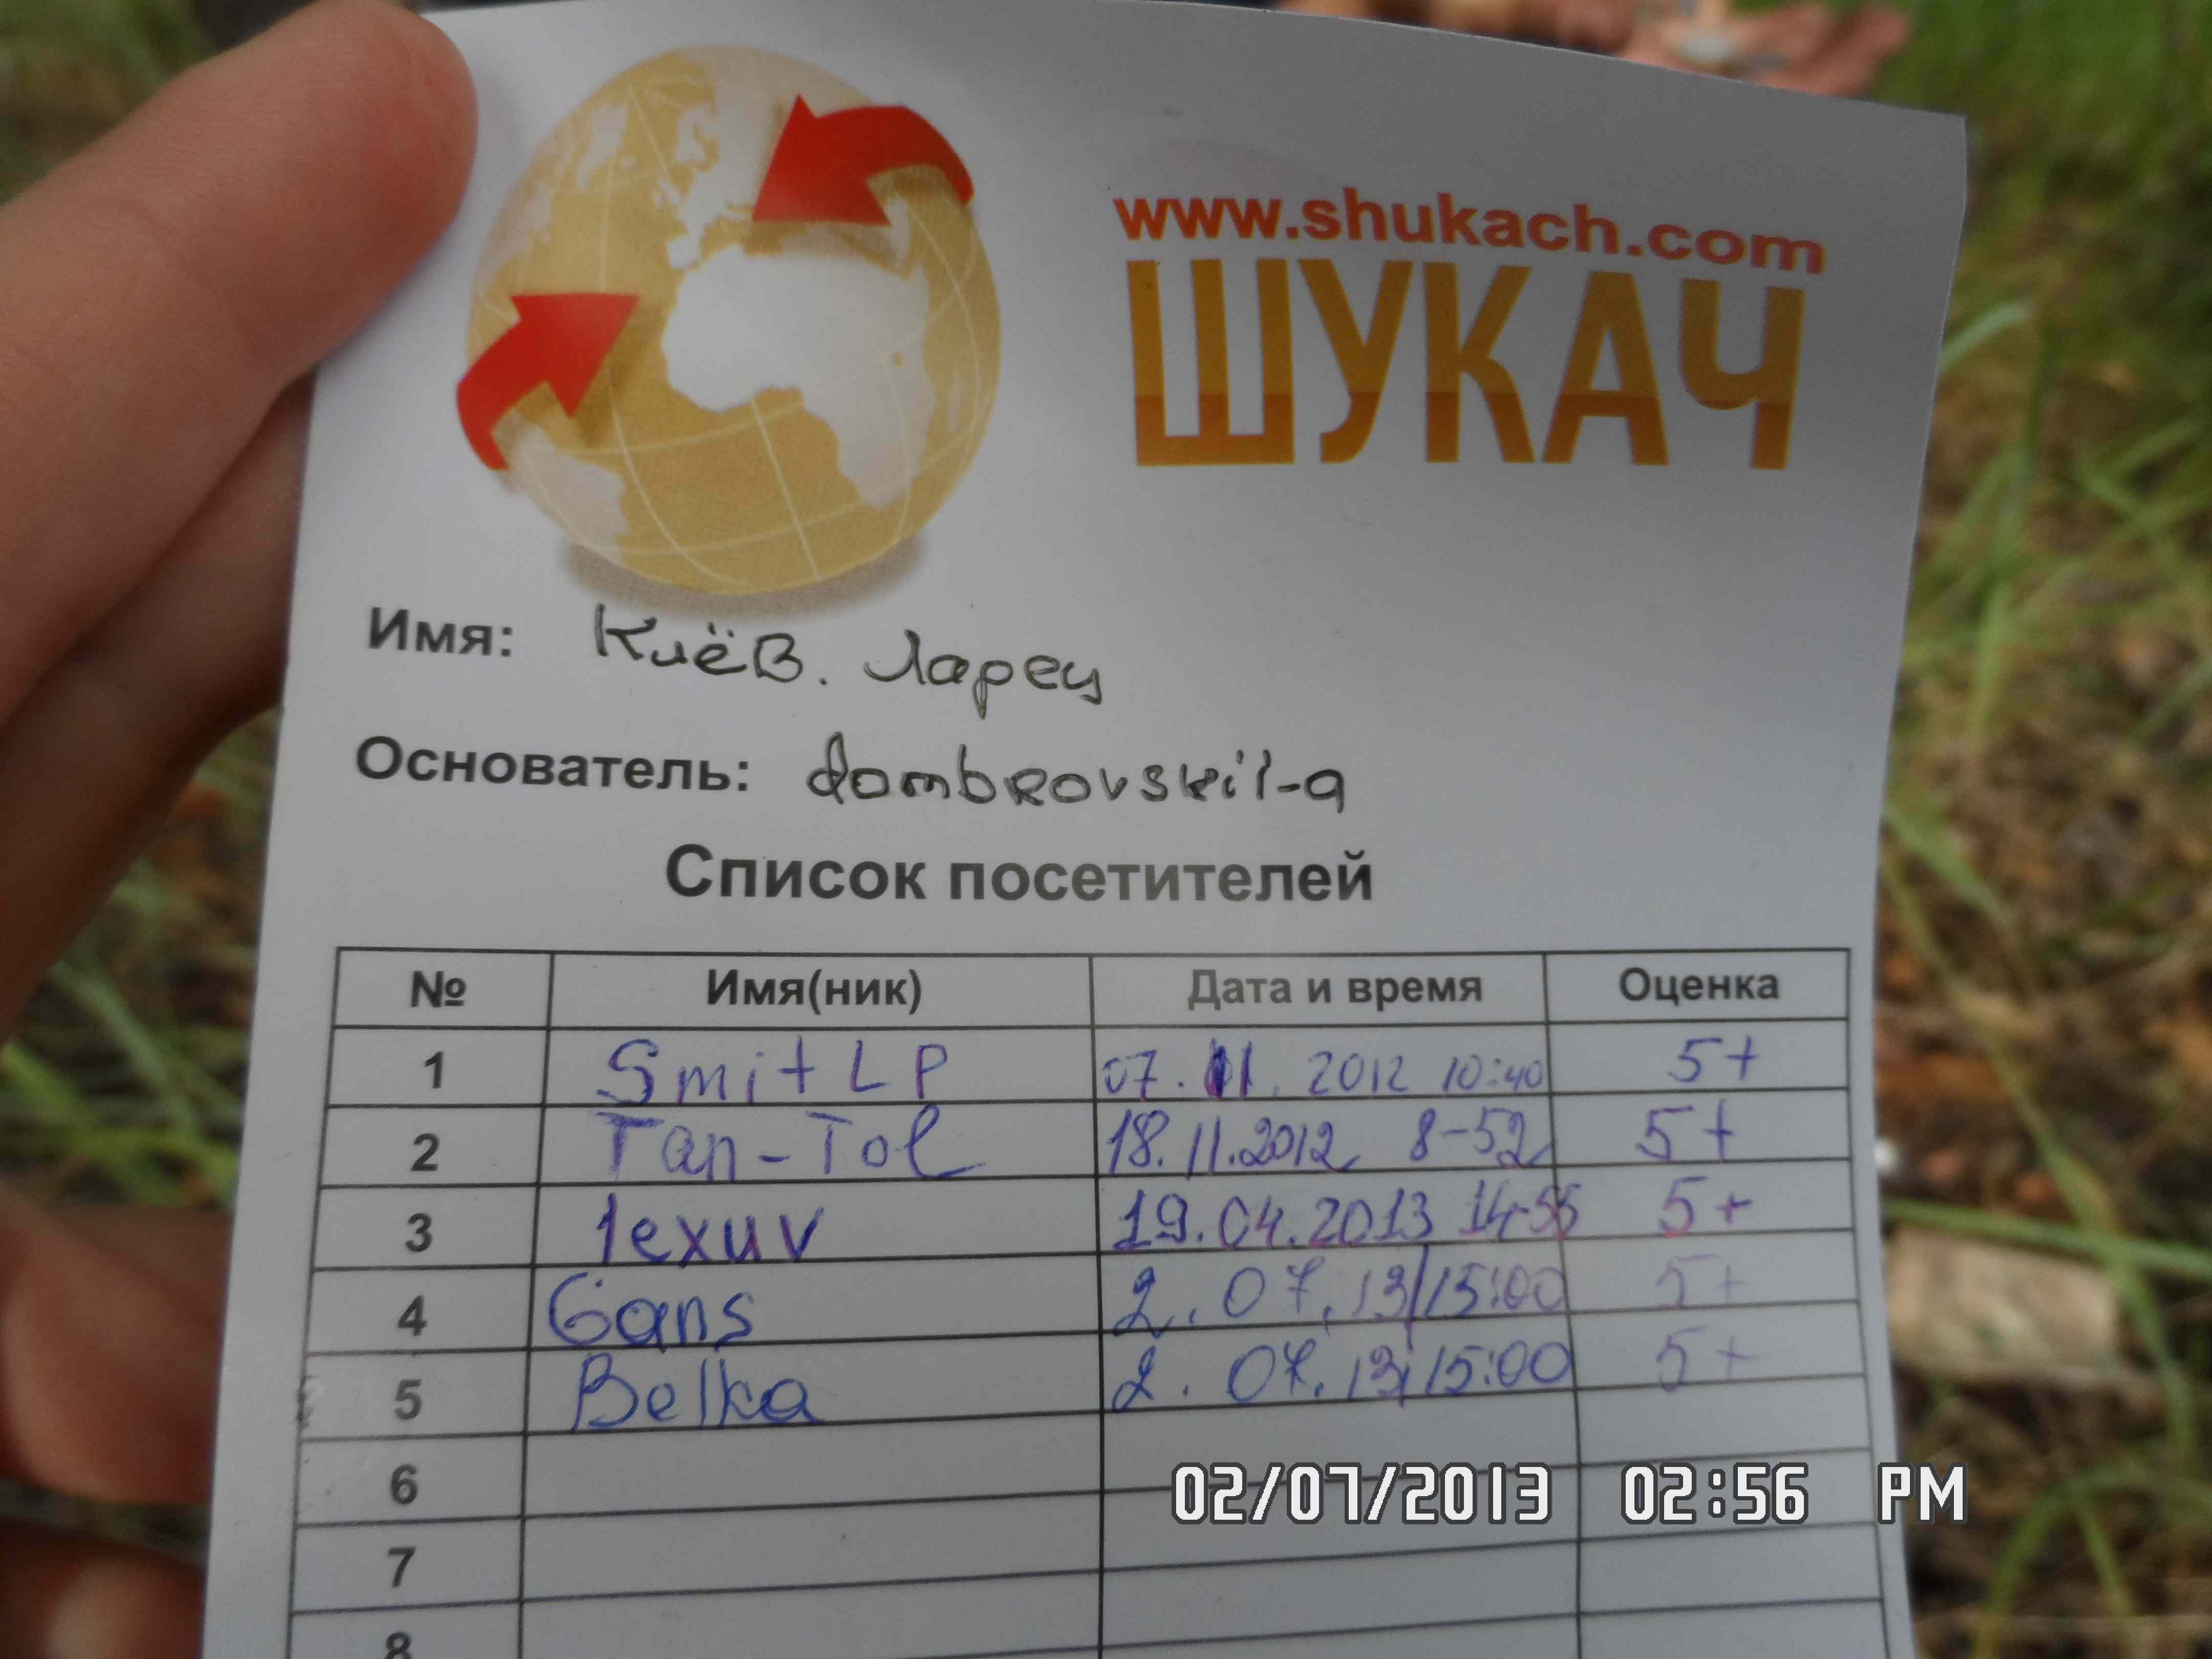 www.shukach.com
ШУКАЧ
Имя: Клёв. Ларец
Основатель: dombrovskil-a
Список посетителей
№ Имя(ник) Дата и время Оценка
1 Smit LP 07.11.2012 10:40 5+
2 Tan-Tol 18.11.2012 8-52 5+
3 lexuv 19.04.2013 14-55 5+
4 Gans 2.07.13/15:00 5+
5 Belka 2.07.13/15:00 5+
6
02/07/2013 02:56 PM
7
8